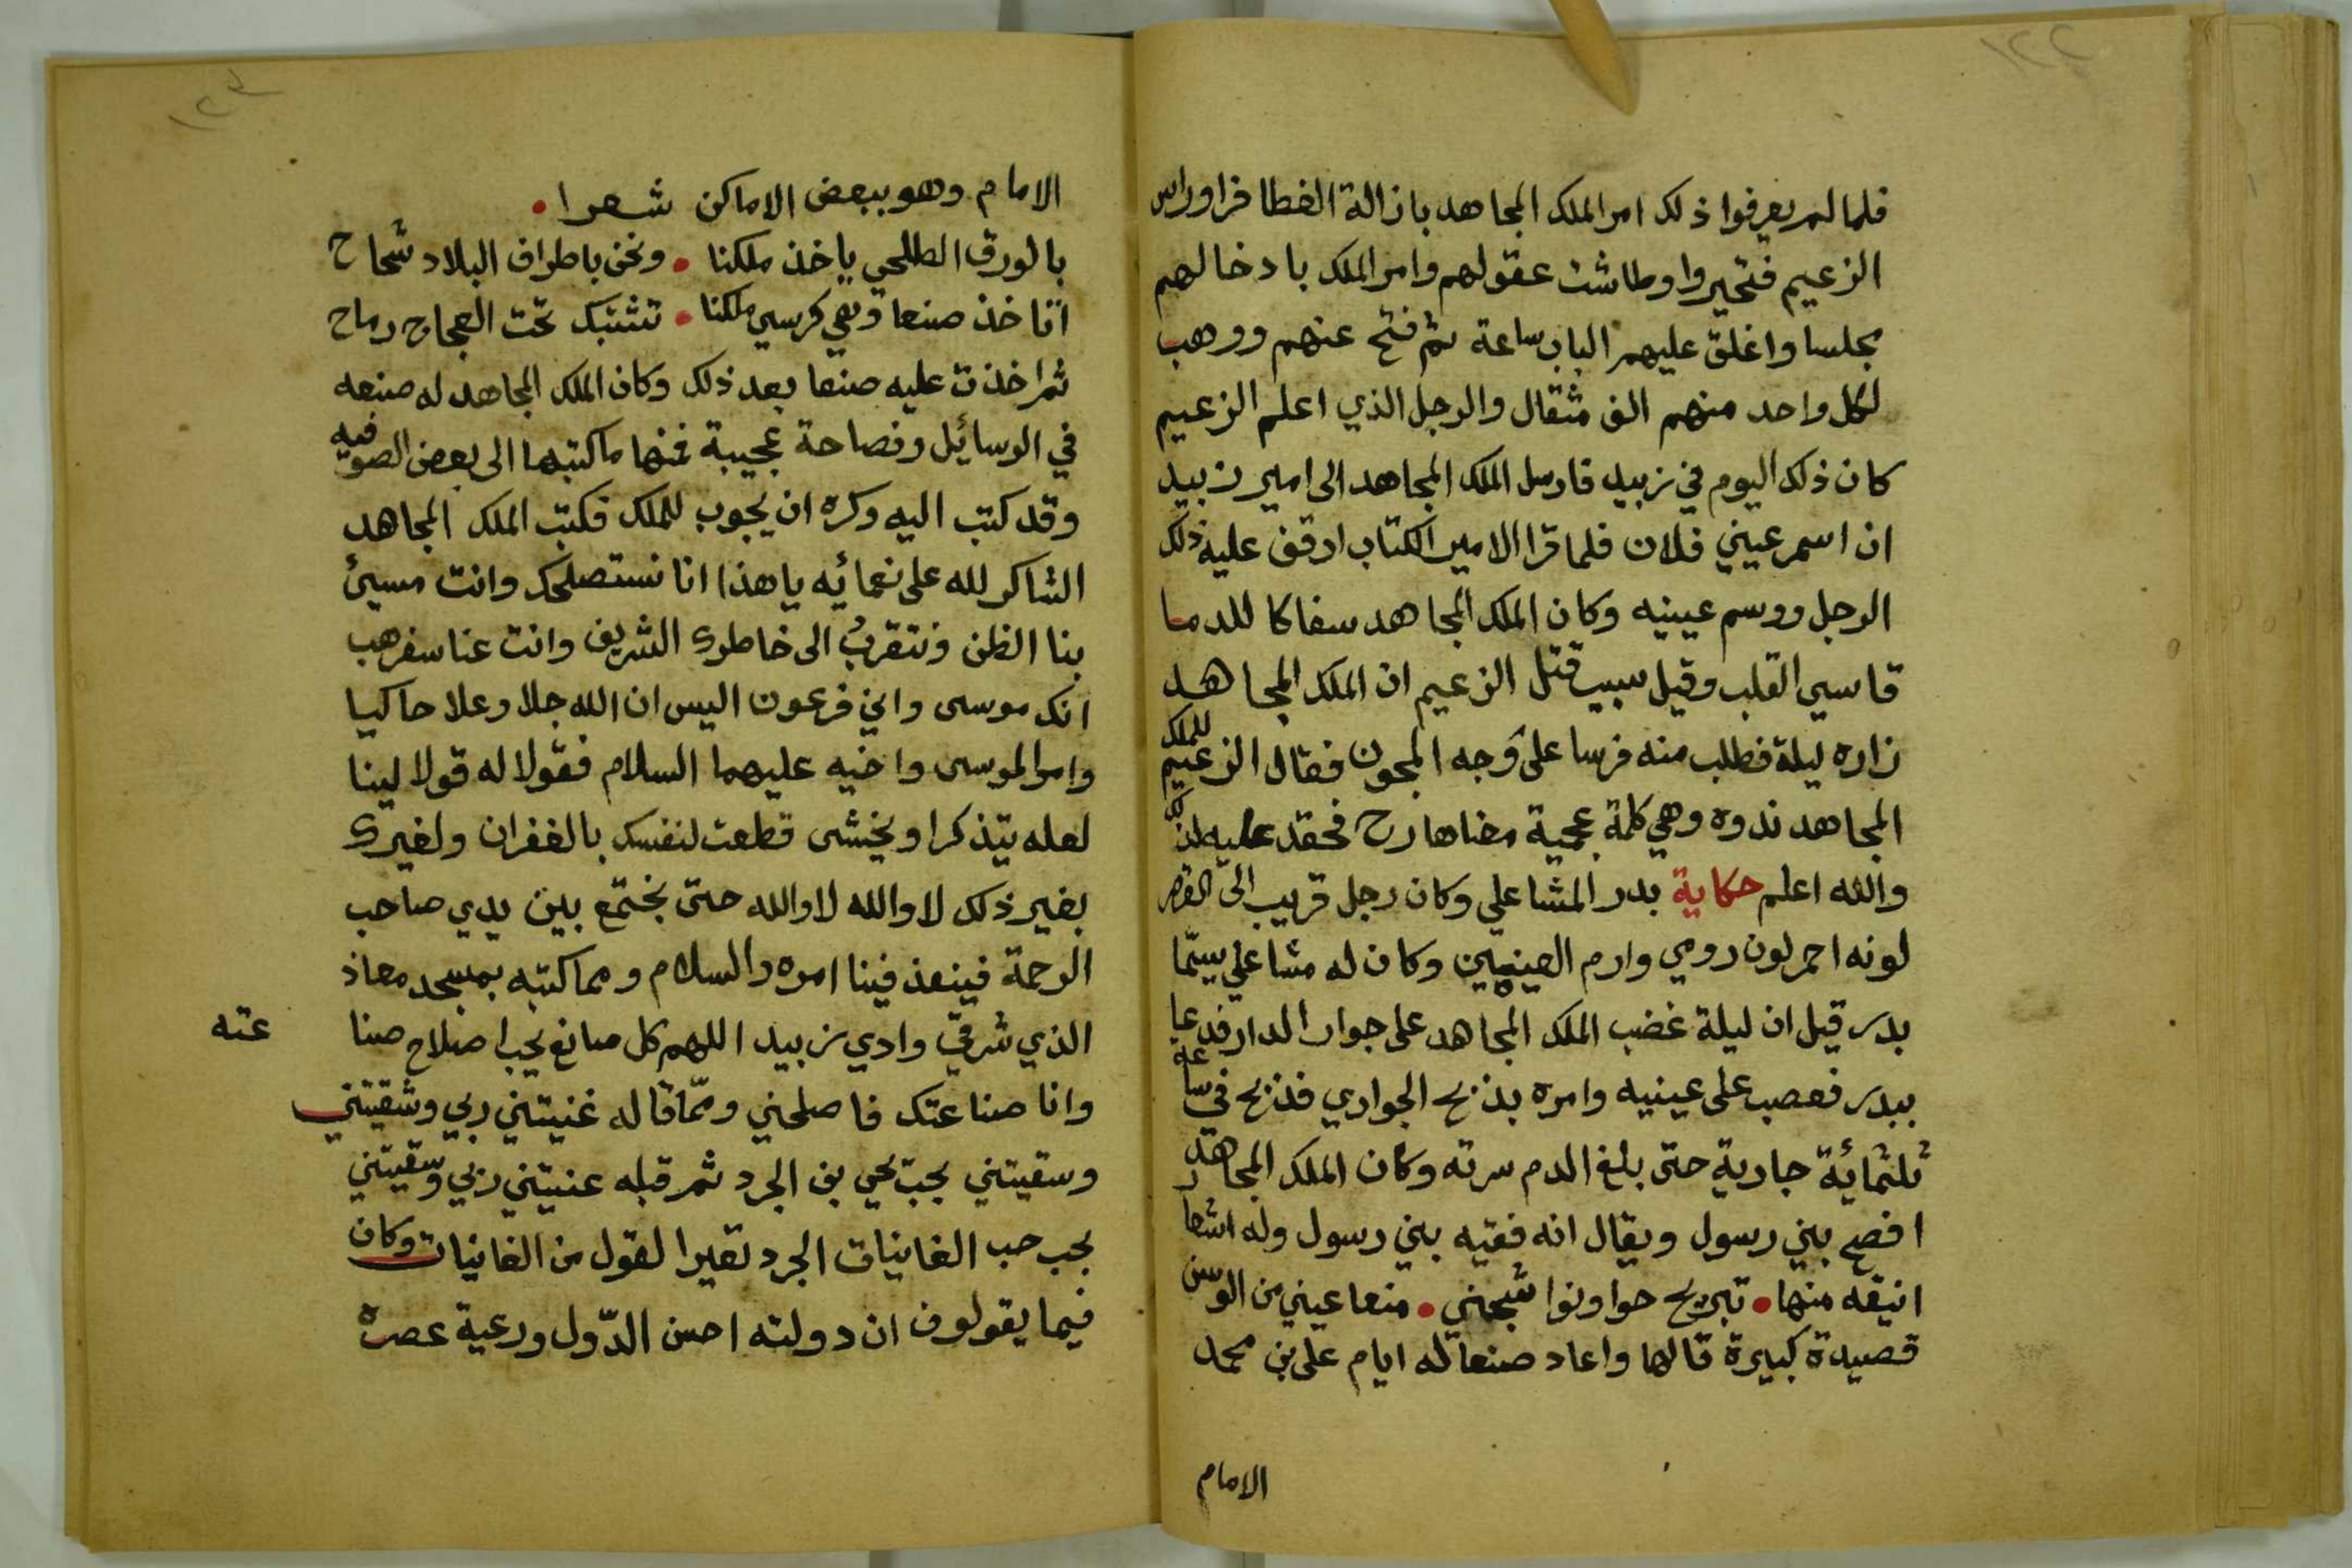 ١٢٢
فلما لم يعرفوا ذلك امر الملك المجاهد بازالة الغطا فراوراس
الزعيم فتحيروا وطاشت عقولهم وامر الملك بادخالهم
مجلسا واغلق عليهم الباب ساعة ثم فتح عنهم ووهب
لكل واحد منهم الف مثقال والرجل الذي اعلم الزعيم
كان ذلك اليوم في زبيد فارسل الملك المجاهد الى امير زبيد
ان اسمر عيني فلان فلما قرا الامير الكتاب اوقف عليه ذلك
الرجل ووسم عينيه وكان الملك المجاهد سفاكا للدما
قاسي القلب وقيل سبب قتل الزعيم ان الملك المجاهد
زاره ليلة فطلب منه فرسا على وجه المجون فقال الزعيم للملك
المجاهد ندوه وهي كلمة عجمية معناها رح فحقد عليه لذلك
والله اعلم حكاية بدر المشاعلي وكان رجل قريب الى القصر
لونه احمر لون رومي وارم العينين وكان له مشاعلي يسمّا
بدر قيل ان ليلة غضب الملك المجاهد على جوار الدار فدعا
ببدر فعصب على عينيه وامره بذبح الجواري فذبح في ساعة
ثلثمائة جارية حتى بلغ الدم سرته وكان الملك المجاهد
افصح بني رسول ويقال انه فقيه بني رسول وله اشعار
انيقه منها • تبريح حوا ونوا شجني • منعا عيني من الوسن
قصيدة كبيرة قالها واعاد صنعا له ايام علي بن محمد
الامام
١٢٣
الامام وهو ببعض الاماكن شعرا •
بالورق الطلحي ياخذ ملكنا • ونحن باطراف البلاد شحاح
اتاخذ صنعا وهي كرسي ملكنا • تشتبك تحت العجاج رماح
ثم اخذت عليه صنعا بعد ذلك وكان الملك المجاهد له صنعه
في الوسائل وفصاحة عجيبة فمنها ما كتبها الى بعض الصوفيه
وقد كتب اليه وكره ان يجوب للملك فكتب الملك المجاهد
الشاكر لله على نعمائه يا هذا انا نستصلحك وانت مسيئ
بنا الظن ونتقرب الى خاطرك الشريف وانت عنا سفر هب
انك موسى واني فرعون اليس ان الله جلا وعلا حاكيا
وامرا لموسى واخيه عليهما السلام فقولا له قولا لينا
لعله يتذكر او يخشى قطعت لنفسك بالغفران ولغيرك
بغير ذلك لا والله لا والله حتى نجتمع بين يدي صاحب
الرحمة فينفذ فينا امره والسلام ومما كتبه بمسجد معاذ
الذي شرقي وادي زبيد اللهم كل صانع يحب اصلاح صنا عته
وانا صناعتك فاصلحني وممّا قاله غنيتني ربي وشقيتني
وسقيتني بحب يحي بن الجرد ثم قبله عنيتني ربي وسقيتني
بحب حب الغانيات الجرد تغيرا لقول من الغانيات وكان
فيما يقولون ان دولته احسن الدّول ورعية عصره